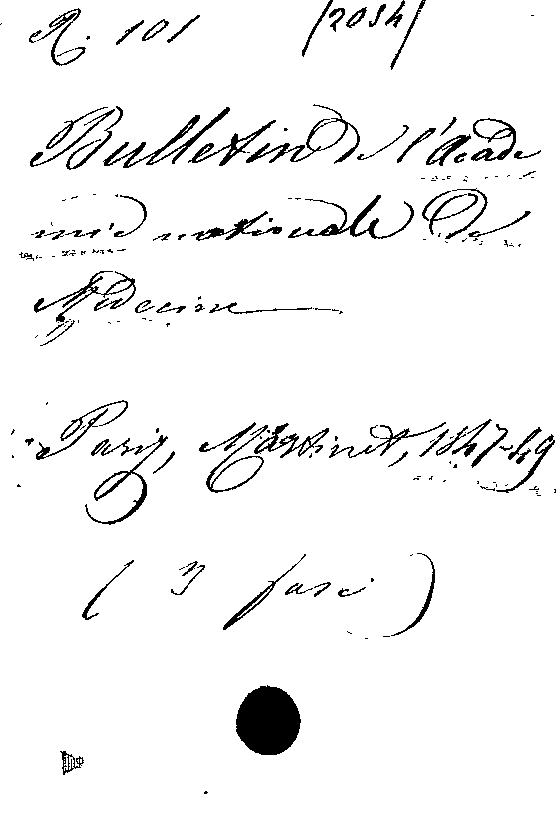 R. 101 (2034)
Bulletin de l'Acadé
mie nationale de
Médecine
Paris, Martinet, 1847-49
( 3 fasc. )